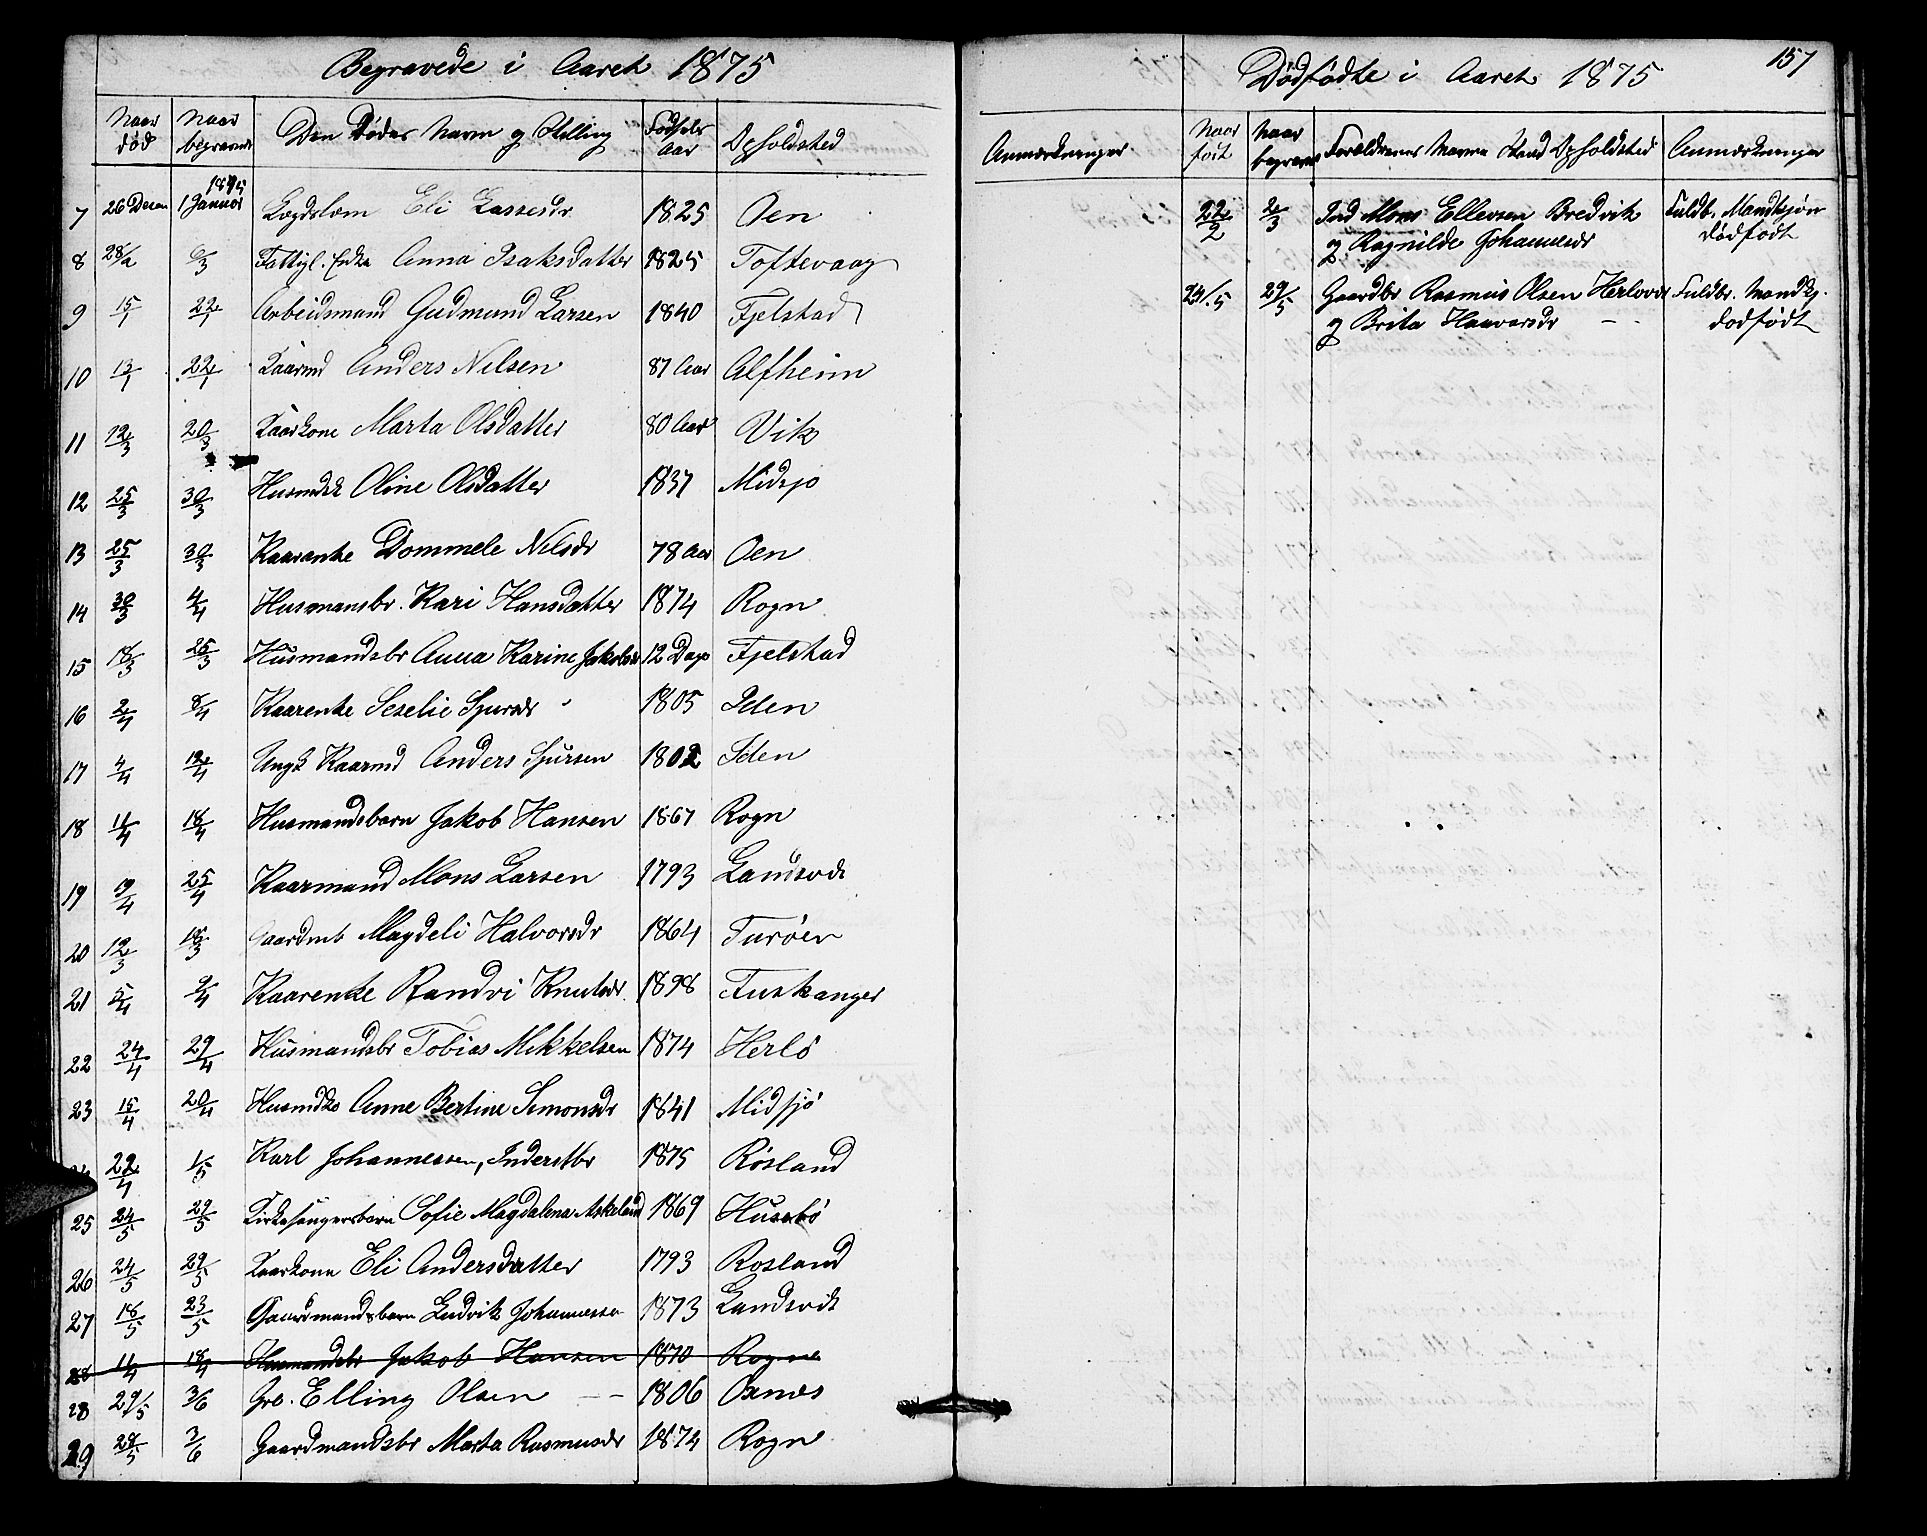 Begravede i Aaret 1875
Naar død | Naar begravede | Den Dødes Navn og Stilling | Fødsels aar | Opholdsted | Anmærkninger
1875
7 | 26 Decem | 1 Januar | Lægdslem Eli Lassesdr | 1825 | Oen
8 | 28/12 | 6/3 | Fattigl. Enke Anna Isaksdatter | 1825 | Toftevaag
9 | 15/1 | 22/1 | Arbeidsmand Gudmund Larsen | 1840 | Fjelstad
10 | 13/1 | 22/1 | Kaarmd Anders Nilsen | 87 Aar | Alfheim
11 | 12/3 | 20/3 | Kaarkone Marta Olsdatter | 80 Aar | Vik
12 | 25/3 | 30/3 | Husmdsk Oline Olsdatter | 1837 | Midsjo
13 | 25/3 | 30/3 | Kaaranke Dommele Nilsdr | 78 Aar | Oen
14 | 30/3 | 4/4 | Husmansbr. Kari Hansdatter | 1874 | Rogn
15 | 18/3 | 25/3 | Husmandsbr Anna Karine Jakobsdr | 12 Dage | Fjelstad
16 | 2/4 | 8/4 | Kaarenke Seselie Sjursdr | 1805 | Iden
17 | 4/4 | 12/4 | Ungk Kaarmd Anders Sjursen | 1802 | Iden
18 | 11/4 | 18/4 | Husmandsbarn Jakob Hansen | 1867 | Rogn
19 | 19/4 | 25/4 | Kaarmand Mons Larsen | 1793 | Landsvik
20 | 12/3 | 18/3 | Gaardmb Magdeli Halvorsdr | 1864 | Turöen
21 | 5/4 | 9/4 | Kaarenke Randvi Knutsdr. | 1898 | Tuskanger
22 | 24/4 | 29/4 | Husmandsbr Tobias Mikkelsen | 1874 | Herlö
23 | 15/4 | 20/4 | Husmdko Anne Bertine Simonsdr | 1841 | Midsjö
22/4 | 1/5 | Karl Johannessen, Inderstbr | 1875 | Rösland
25 | 24/5 | 29/5 | Kirkesangersbarn Sofie Magdalena Askeland | 1869 | Husebö
26 | 24/5 | 29/5 | Kaarkone Eli Andersdatter | 1793 | Rosland
27 | 18/5 | 23/5 | Gaardmandsbarn Ludvik Johannessen | 1873 | Landsvik
28 | 11/4 | 18/4 | Husmandsbr Jakob Hansen | 1870 | Rogne
28 | 29/5 | 3/6 | Gre. Elling Olsen | 1806 | Oxnes
29 | 28/5 | 3/6 | Gaardmandsbr Marta Rasmusdr | 1874 | Rogn
157
Dødfødte i Aaret 1875
Naar født | Naar begraved | Forældrenes Navne Stand Opholdsted | Anmærkninger
22/2 | 2/3 | Ind Mons Ellevsen Bredvik | Fuldb. Mandkjön
og Ragnilde Johannesdr | dødfødt
24/5 | 29/5 | Gaardbr Rasmus Olsen Herlover | Fuldbr. Mandkj.
og Brita Haavarsdr | dødfødt